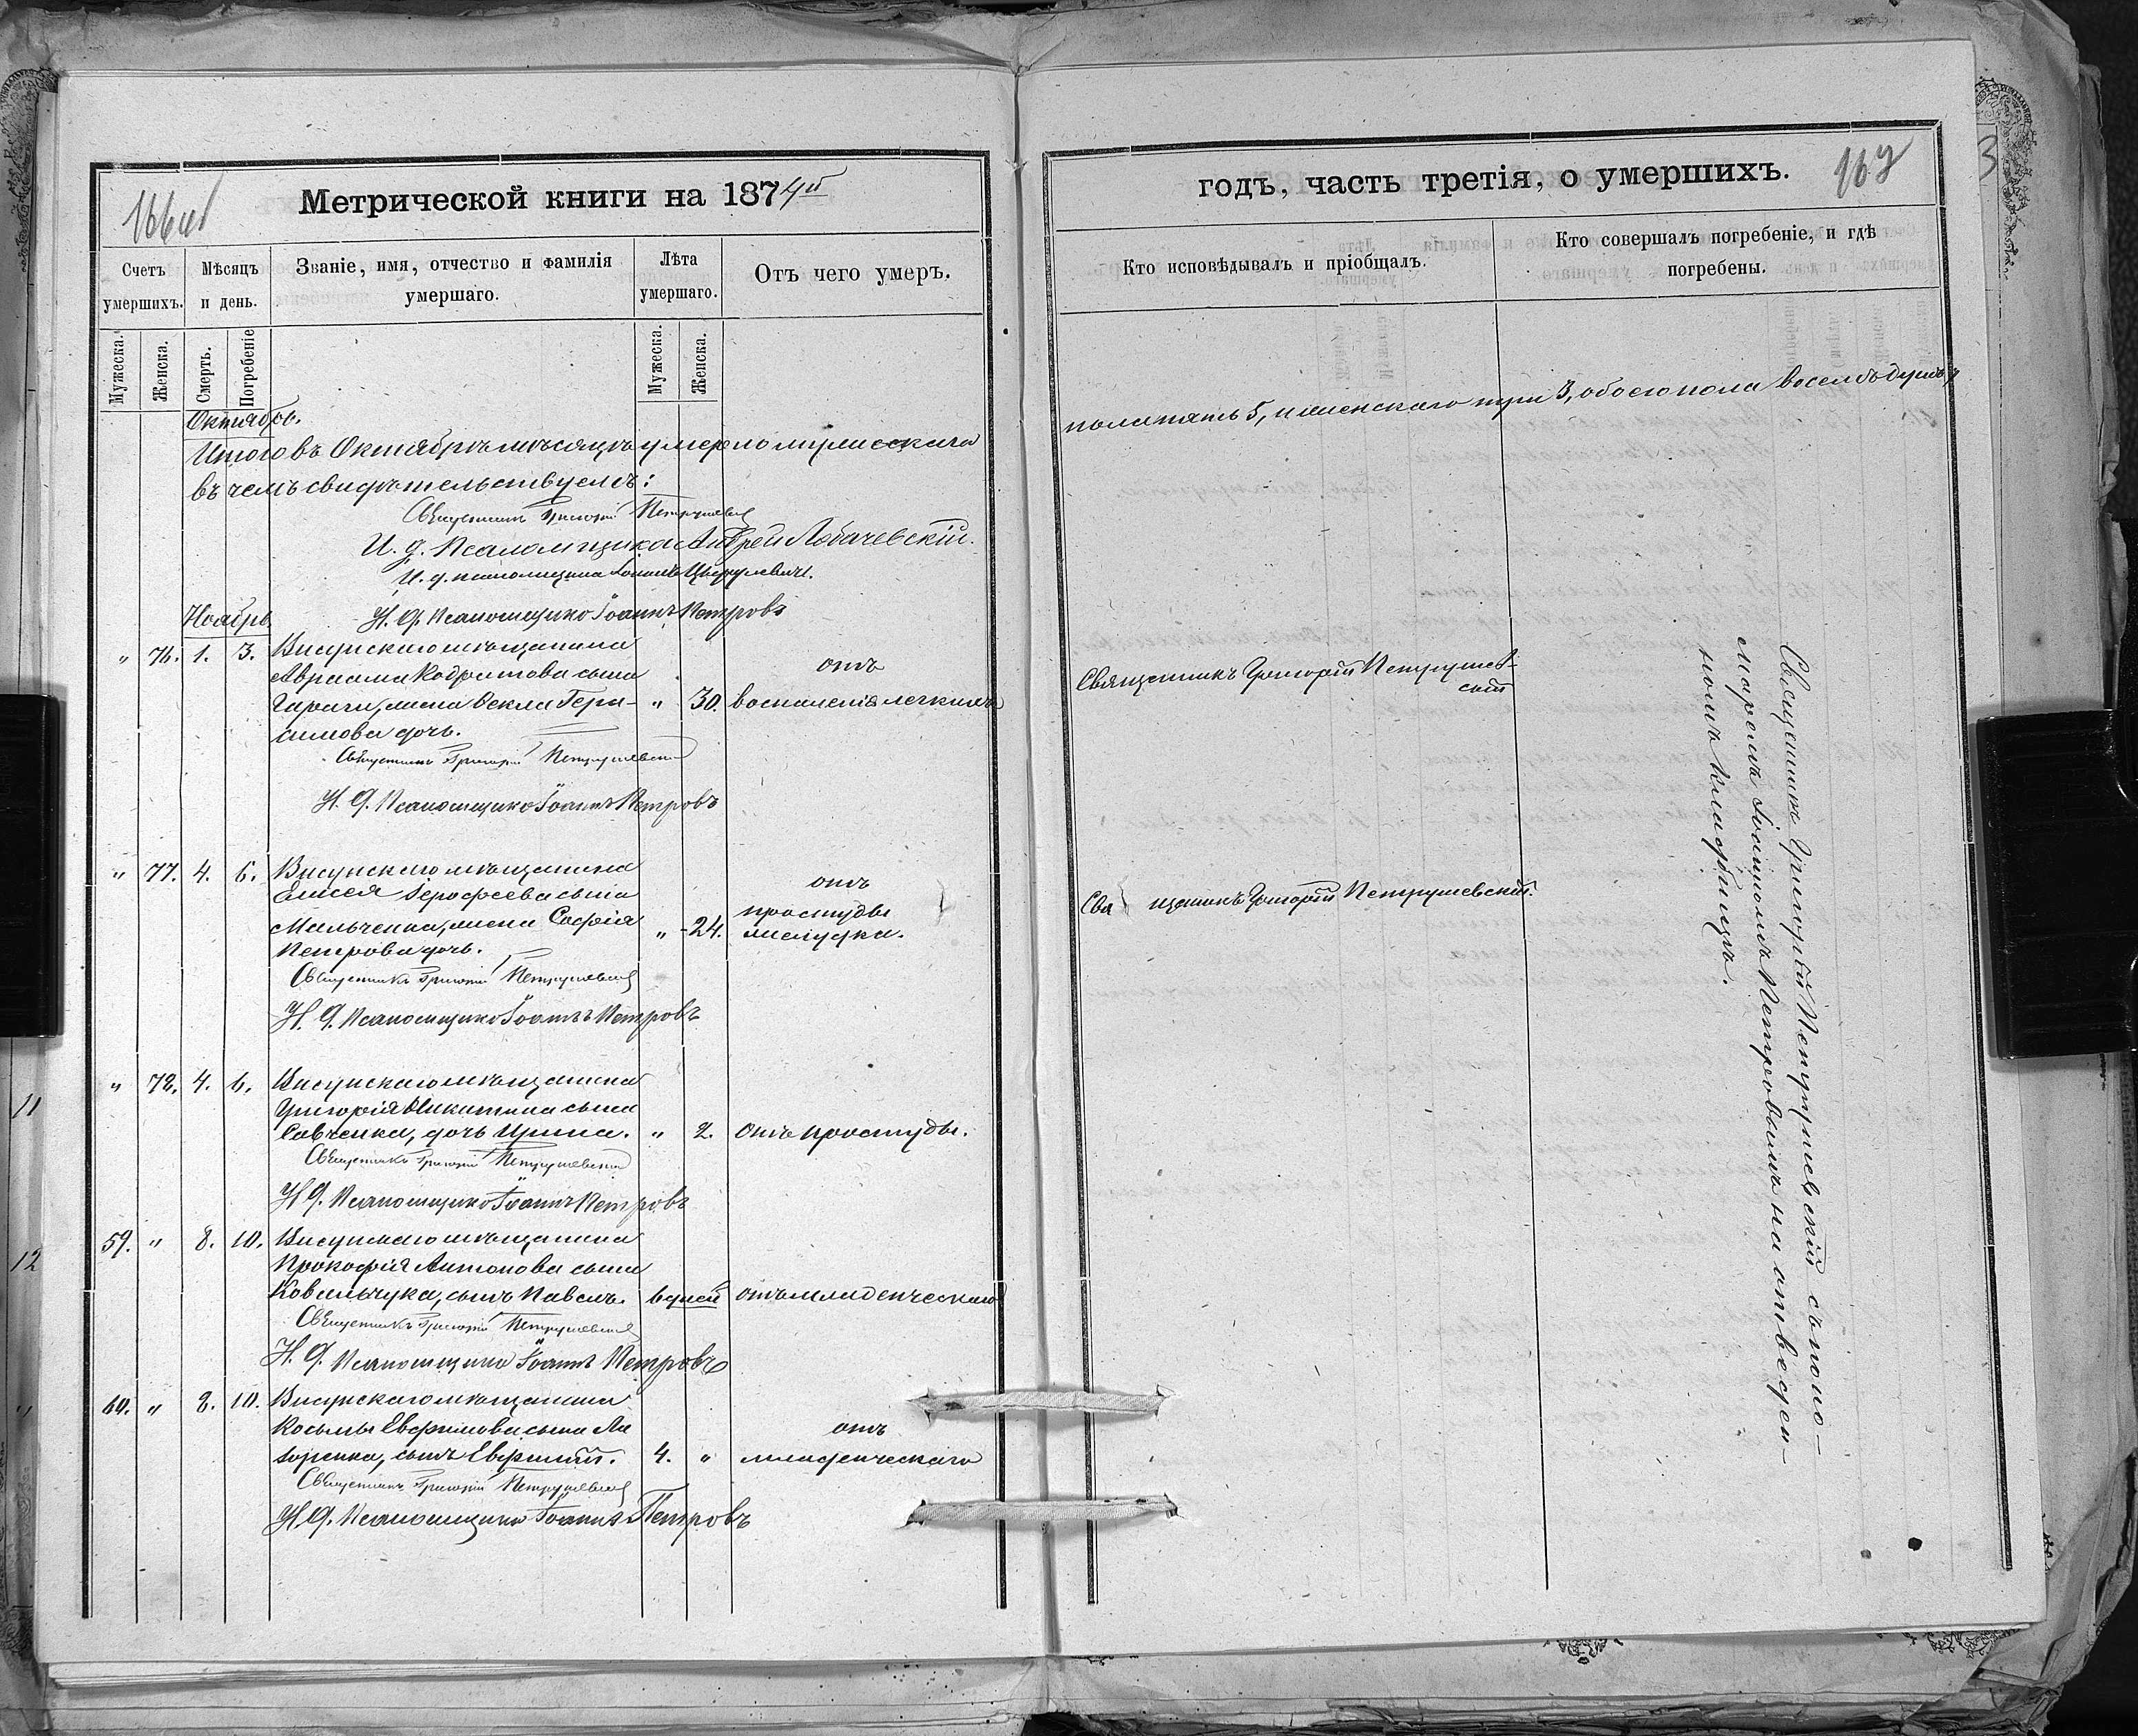 166 об
Метрической книги на 1874й
Счетъ умершихъ.
Мѣсяцъ и день.
Званіе, имя, отчество и фамилія умершаго.
Лѣта умершаго.
Отъ чего умеръ.
Мужеска.
Женска.
Смерть.
Погребеніе
Мужеска.
Женска.
Октябрь.
Итого въ Октябрѣ мѣсяцѣ умерло мужескаго
въ чемъ свидѣтельствуемъ:
Священникъ Григорій Петрушевскій
И. д. Псаломщика Андрей Лобачевскій.
И. д. псаломщика Іоаннъ
И. д. Псаломщика Іоаннъ Петровъ
Ноябрь
" 76. 1. 3. Висунскаго мѣщанина
Авраама Кодратова сына
жена Текла Гера- " 30. отъ воспаленія легкихъ
симова дочь.
Священникъ Григорій Петрушевскій
И. д. Псаломщика Іоаннъ Петровъ
" 77. 4. 6. Висунскаго мѣщанина
Елисея Іерофеева сына
Мальченка, жена Софія " 24. отъ простуды желудка.
Петрова дочь.
Священникъ Григорій Петрушевскій
И. д. Псаломщика Іоаннъ Петровъ
" 78. 4. 6. Висунскаго мѣщанина
Григорія Никитина сына
Савченка, дочь Ирина. " 2. отъ простуды.
Священникъ Григорій Петрушевскій
И. д. Псаломщика Іоаннъ Петровъ
59. " 8. 10. Висунскаго мѣщанина
Прокофія Антонова сына
Ковальчука, сынъ Павелъ. 6 дней отъ младенческаго
Священникъ Григорій Петрушевскій
И. д. Псаломщика Іоаннъ Петровъ
60. " 8. 10. Висунскаго мѣщанина
Косьмы Евфимова сына Ла
зоренка, сынъ Евфимій. 4. " отъ младенческаго
Священникъ Григорій Петрушевскій
И. д. Псаломщика Іоаннъ Петровъ
годъ, часть третія, о умершихъ.
167
Кто исповѣдывалъ и пріобщалъ.
Кто совершалъ погребеніе, и гдѣ погребены.
пола пять 5, и женскаго три 3, обоего пола восемь душъ
Священникъ Григорій Петрушев-
скій
Священникъ Григорій Петрушевскій.
Священникъ Григорій Петрушевскій съ поно-
маремъ Іоанномъ Петровымъ на отведен-
номъ кладбищѣ.
3
11
12